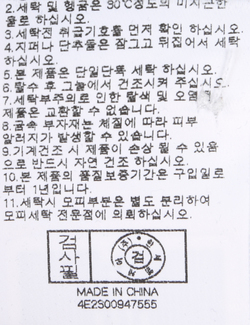 2.세탁 및 헹굼은 30℃정도의 미지근한
물로 하십시오.
3.세탁전 취급기호를 먼저 확인 하십시오.
4.지퍼나 단추들은 잠그고 뒤집어서 세탁
하십시오.
5.본 제품은 단일단독 세탁 하십시오.
6.탈수 후 그늘에서 건조시켜 주십시오.
7.세탁부주의로 인한 탈색 및 오염
제품은 교환할 수 없습니다.
8.금속 부자재는 체질에 따라 피부
알러지가 발생할 수 있습니다.
9.기계건조 시 제품이 손상 될 수 있음
으로 반드시 자연 건조 하십시오.
10.본 제품의 품질보증기간은 구입일로
부터 1년입니다.
11.세탁시 모피부분은 별도 분리하여
모피세탁 전문점에 의뢰하십시오.
검사품
검
MADE IN CHINA
4E2S00947555